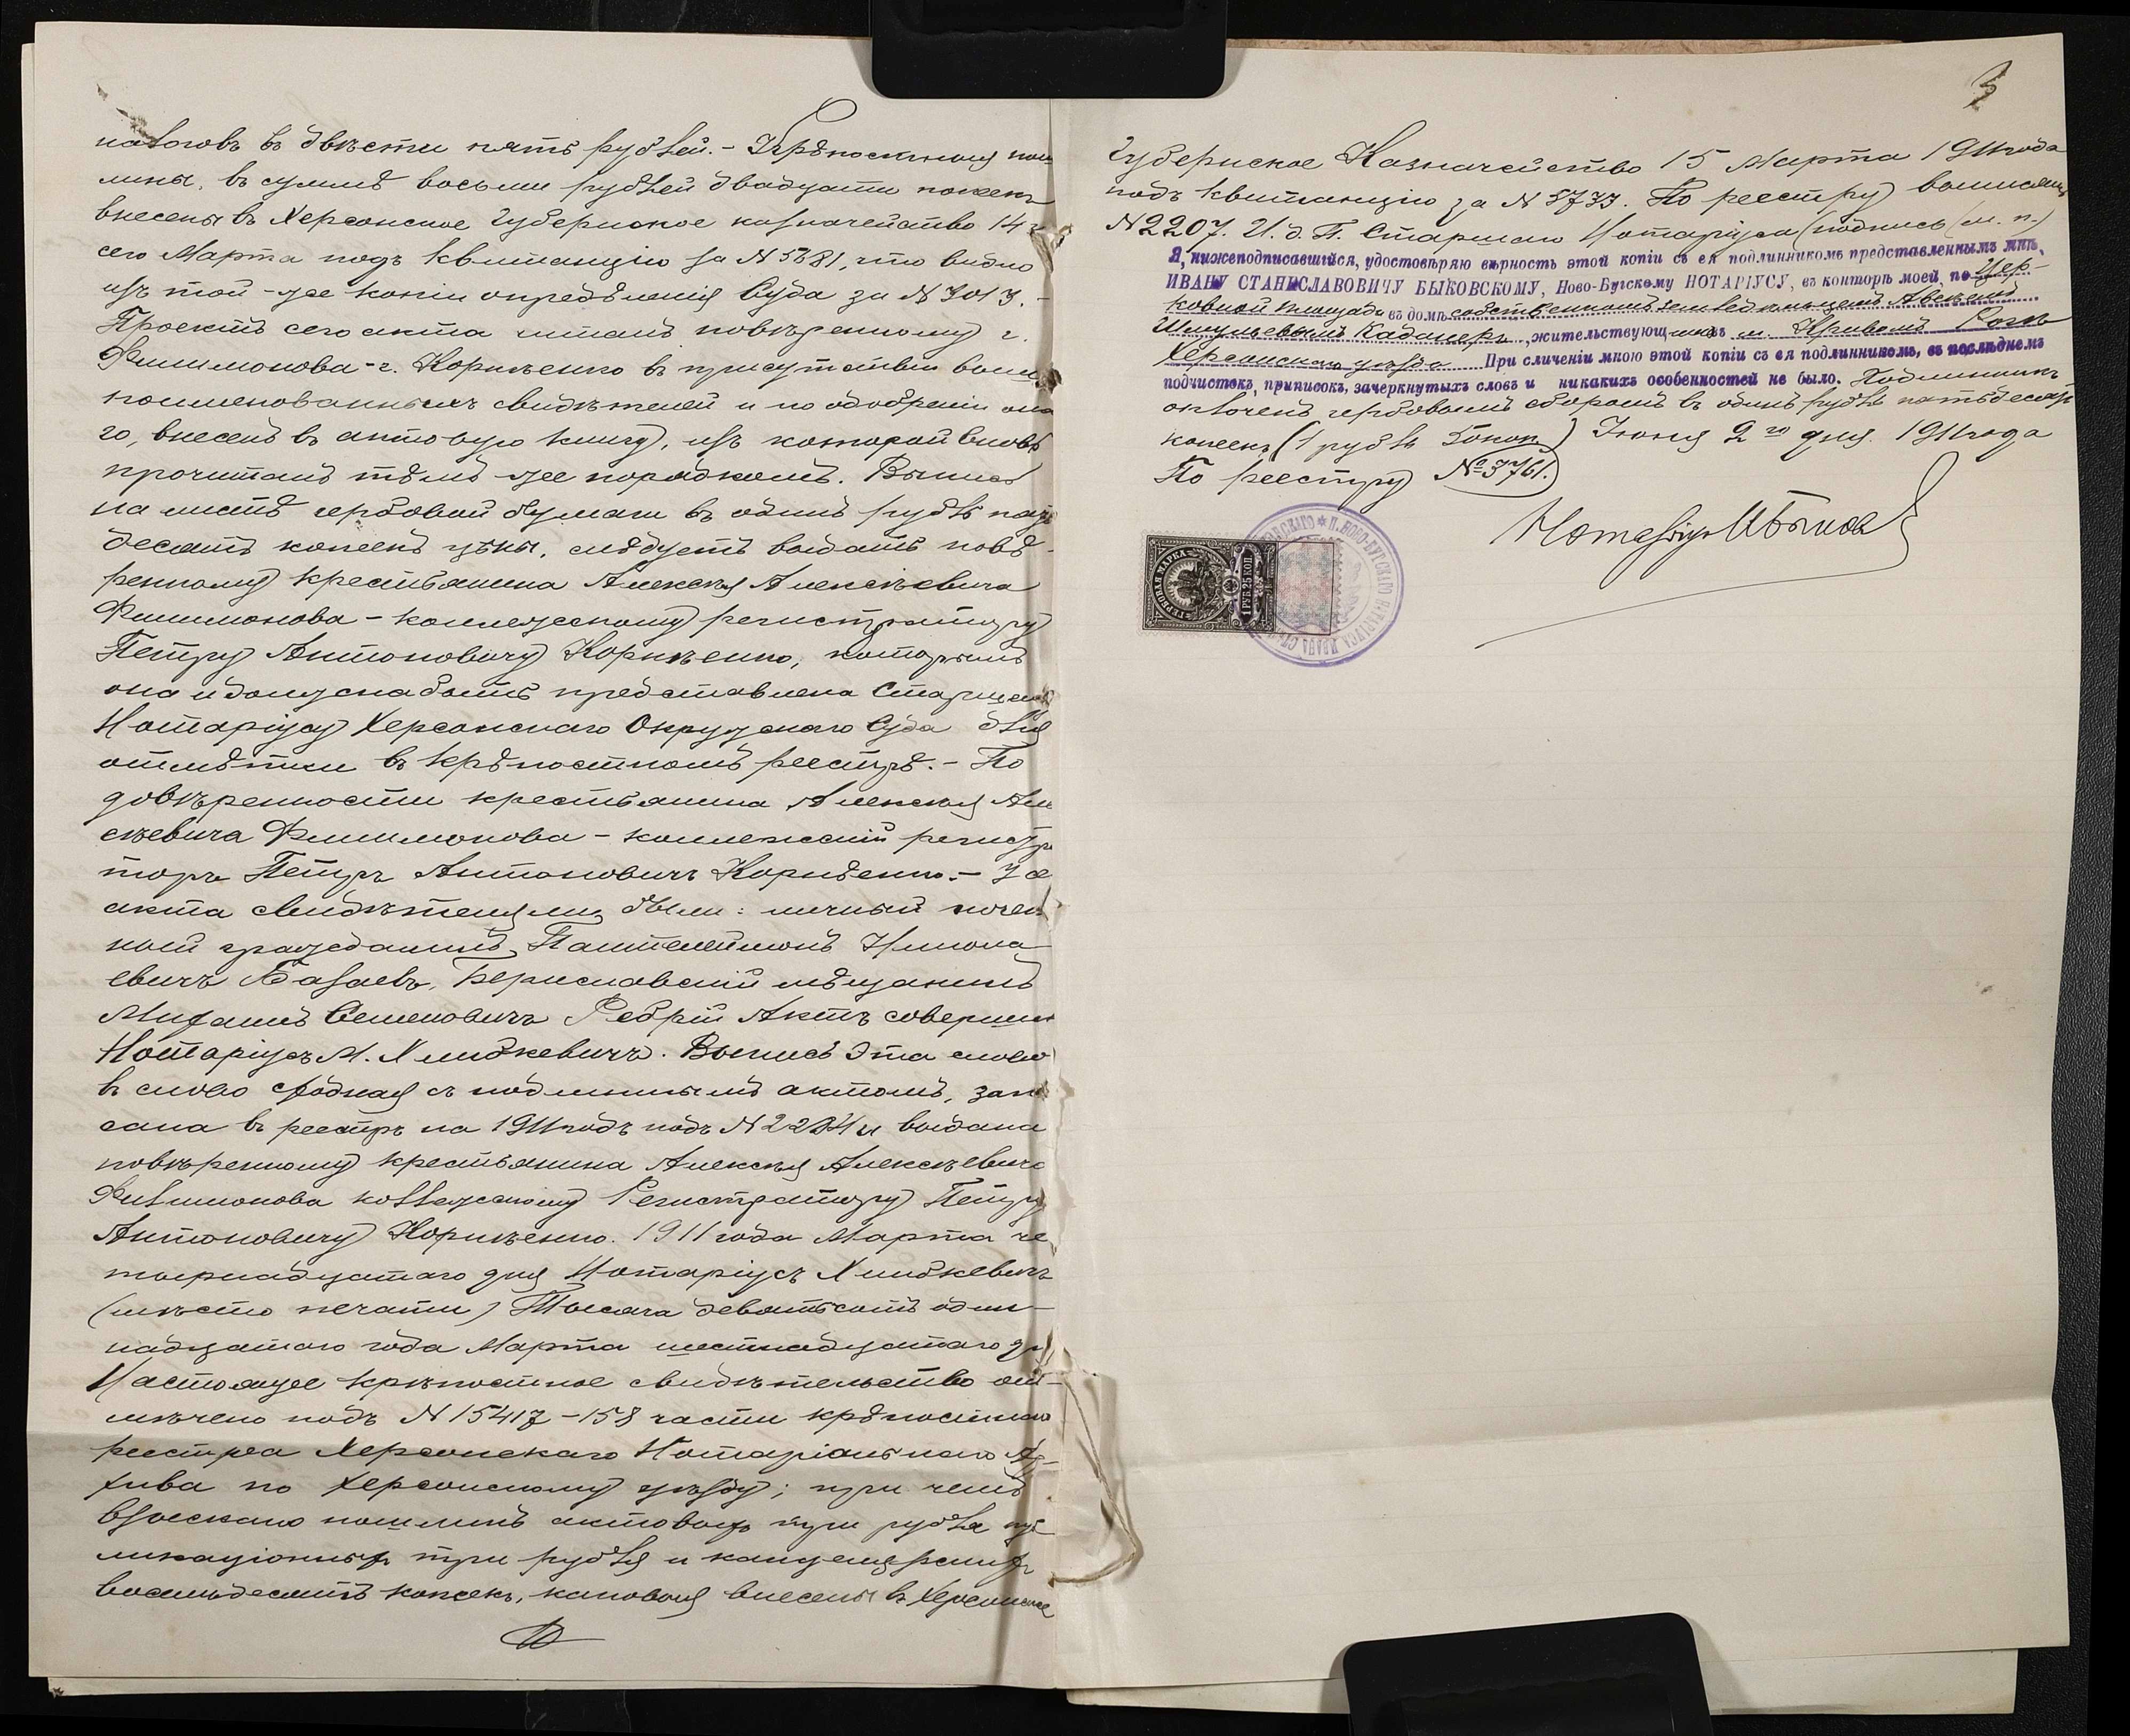 налоговъ въ двѣсти пять рублей. - Крѣпостныя пош
лины, въ суммѣ восьми рублей двадцати копеекъ
внесены въ Херсонское Губернское казначейство 14
сего Марта подъ квитанцію за N 5681, что видно
изъ той-же копіи опредѣленія Суда за N 3013. -
Проектъ сего акта читанъ повѣренному г.
Филимонова - г. Корнѣенко въ присутствіи выше
поименованныхъ свидѣтелей и по одобреніи она
го, внесенъ въ актовую книгу, изъ которой вновь
прочитанъ тѣмъ же порядкомъ. Выпись
на листѣ гербовой бумаги въ одинъ рубль пять
десятъ копеекъ цѣны, слѣдуетъ выдать повѣ-
ренному крестьянина Алексѣя Алексѣевича
Филимонова - коллежскому регистратору
Петру Антоновичу Корнѣенко, которымъ
она и должна быть представлена Старшему
Нотаріусу Херсонскаго Окружнаго Суда для
отмѣтки въ крѣпостномъ реестрѣ. - По
довѣренности крестьянина Алексѣя Але
ксѣевича Филимонова - коллежскій регистра
торъ Петръ Антоновичъ Корнѣенко. - У се
акта свидѣтелями были: личный почет
ный гражданинъ Пантелеймонъ Никола
евичъ Базаевъ, Бериславскій мѣщанинъ
Михаилъ Семеновичъ Ребрій Актъ совершилъ
Нотаріусъ М. Хмидкевичъ. Выпись эта слово
въ слово сходная съ подлиннымъ актомъ, запи
сана въ реестръ на 1911 годъ подъ N 2284 и выдана
повѣренному крестьянина Алексѣя Алексѣевича
Филимонова коллежскому Регистратору Петру
Антоновичу Корнѣенко. 1911 года Марта че
тырнадцатаго дня Нотаріусъ Хмидкевичъ
(мѣсто печати) Тысяча девятьсотъ один-
надцатаго года Марта шестнадцатаго дн
Настоящее крѣпостное свидѣтельство от-
мѣчено подъ N 15417 - 158 части крѣпостного
реестра Херсонскаго Нотаріальнаго Ар-
хива по Херсонскому уѣзду; при чемъ
взыскано пошлинъ актовыхъ три рубля пуб
ликаціонныхъ три рубля и канцелярскихъ
восемьдесятъ копеекъ, каковыя внесены въ Херсонское
3
Губернское Казначейство 15 Марта 1911 года
подъ квитанцію за N 5733. По реестру
N 2207. И. д. Старшаго Нотаріуса (подпись) (м. п.)
Я, нижеподписавшійся, удостовѣряю вѣрность этой копіи съ ея подлинникомъ представленнымъ мнѣ,
ИВАНУ СТАНИСЛАВОВИЧУ БЫКОВСКОМУ, Ново-Бугскому НОТАРІУСУ, въ конторѣ моей, по Цер-
ковной площади въ домѣ собственномъ землевладѣльцемъ
Шмульевымъ Кадинеръ, жительствующимъ въ м. Кривомъ Рогѣ
Херсонскаго уѣзда При сличеніи мною этой копіи съ ея подлинникомъ, въ послѣднемъ
подчистокъ, приписокъ, зачеркнутыхъ словъ и никакихъ особенностей не было. Подлинникъ
оплоченъ гербовымъ сборомъ въ одинъ рубль пятьдесятъ
копеекъ (1 рубль 50 коп.) Іюня 2го дня 1911 года
По реестру № 3761.
Нотаріусъ И Быков
ГЕРБОВАЯ МАРКА
1 РУБ. 25 КОП.
Н. НОВО-БУГСКАГО НОТАРІУСА ИВАНА СТ